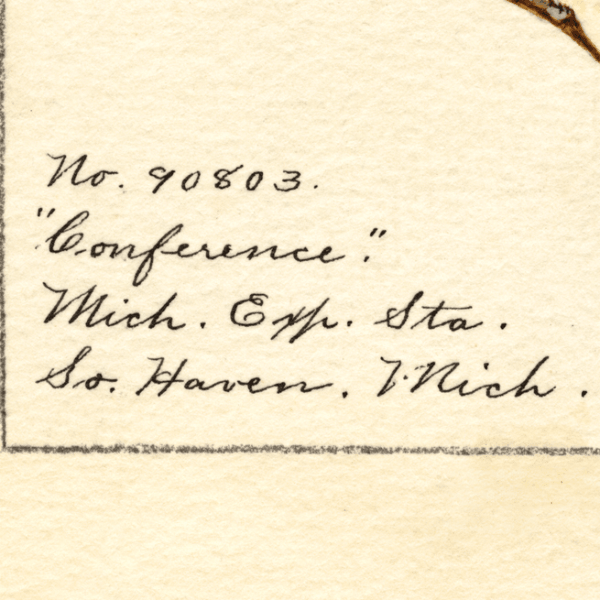 No. 90803.
"Conference."
Mich. Exp. Sta.
So. Haven. Mich.